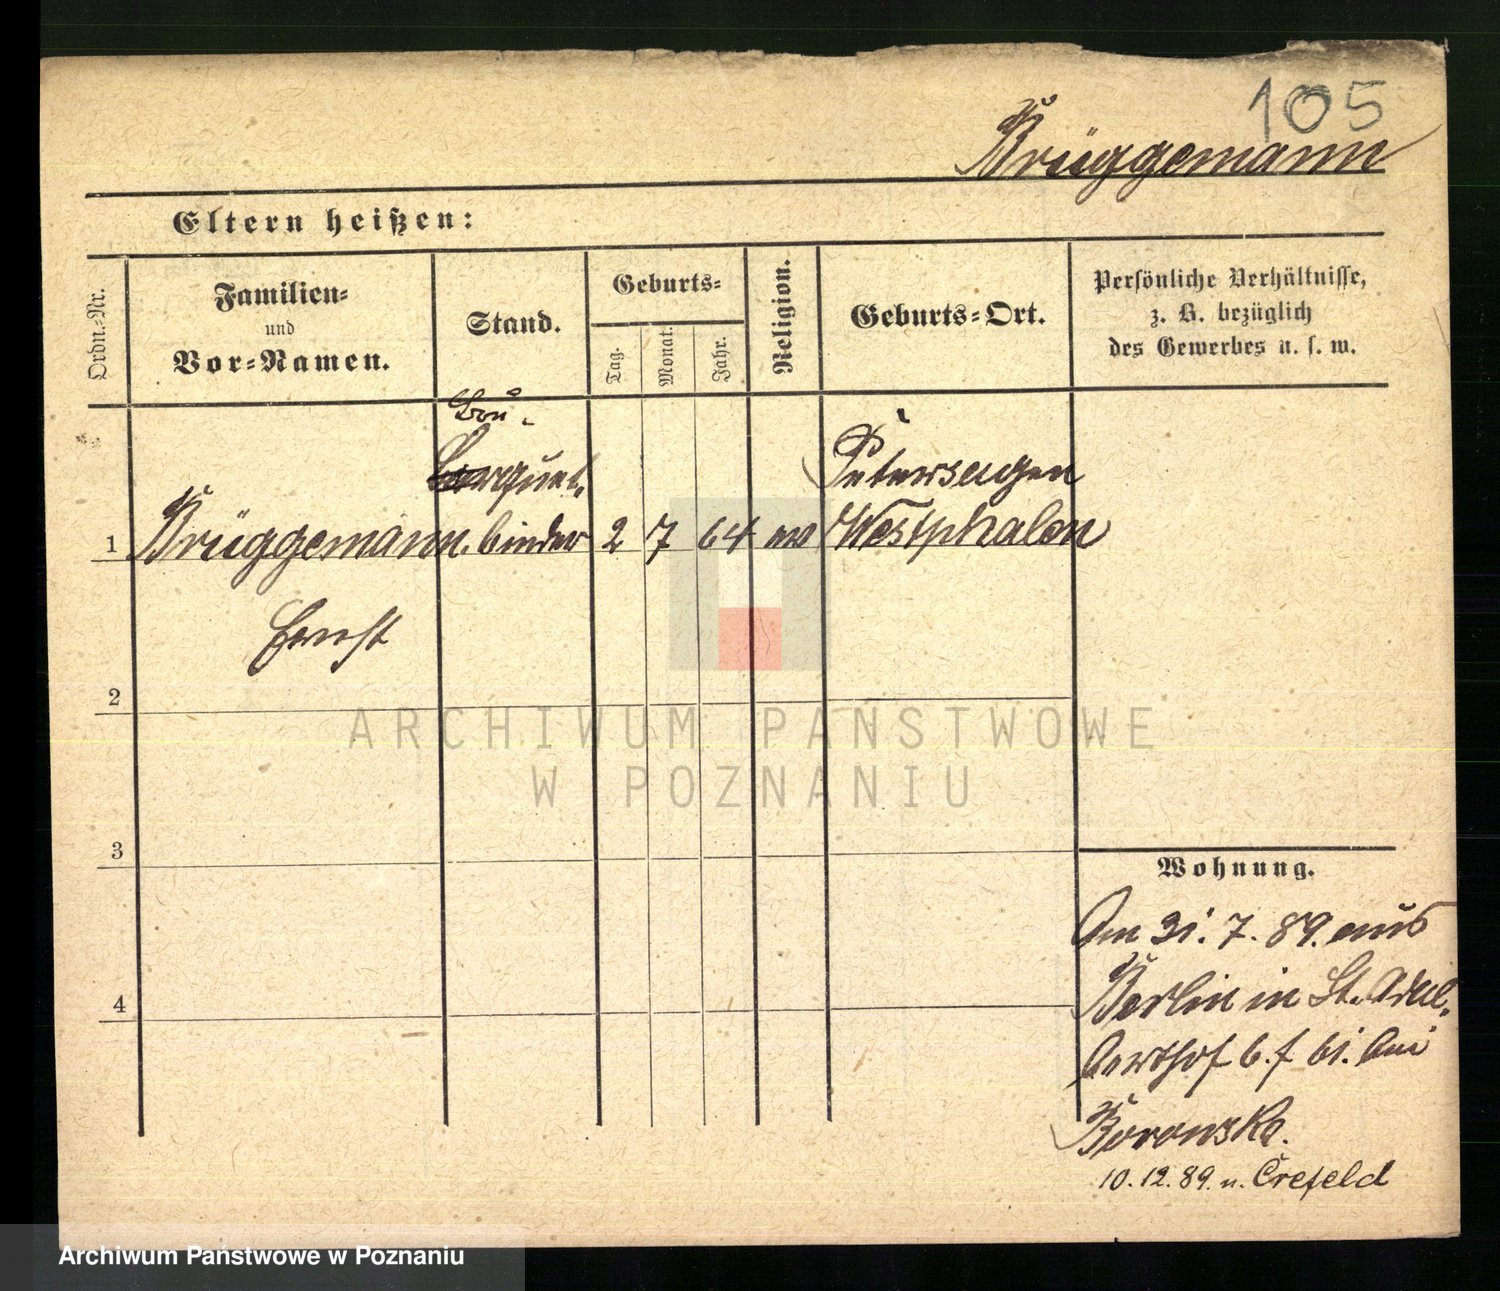 105
Brüggemann
Eltern heißen:
Ordn.-Nr.
Familien-
und
Vor-Namen.
Stand.
Geburts-
Tag.
Monat.
Jahr.
Religion.
Geburts-Ort.
Persönliche Verhältnisse,
z. B. bezüglich
des Gewerbes u. s. w.
Petershagen
1 Brüggemann binder 2 7 64 ev Westphalen
Ernst
2
3
4
Wohnung.
Am 31. 7. 89. aus
Berlin in St. Adal-
berthof 6. f bi. bei
Borowska.
10. 12. 89. n. Crefeld
ARCHIWUM PAŃSTWOWE
W POZNANIU
Archiwum Państwowe w Poznaniu